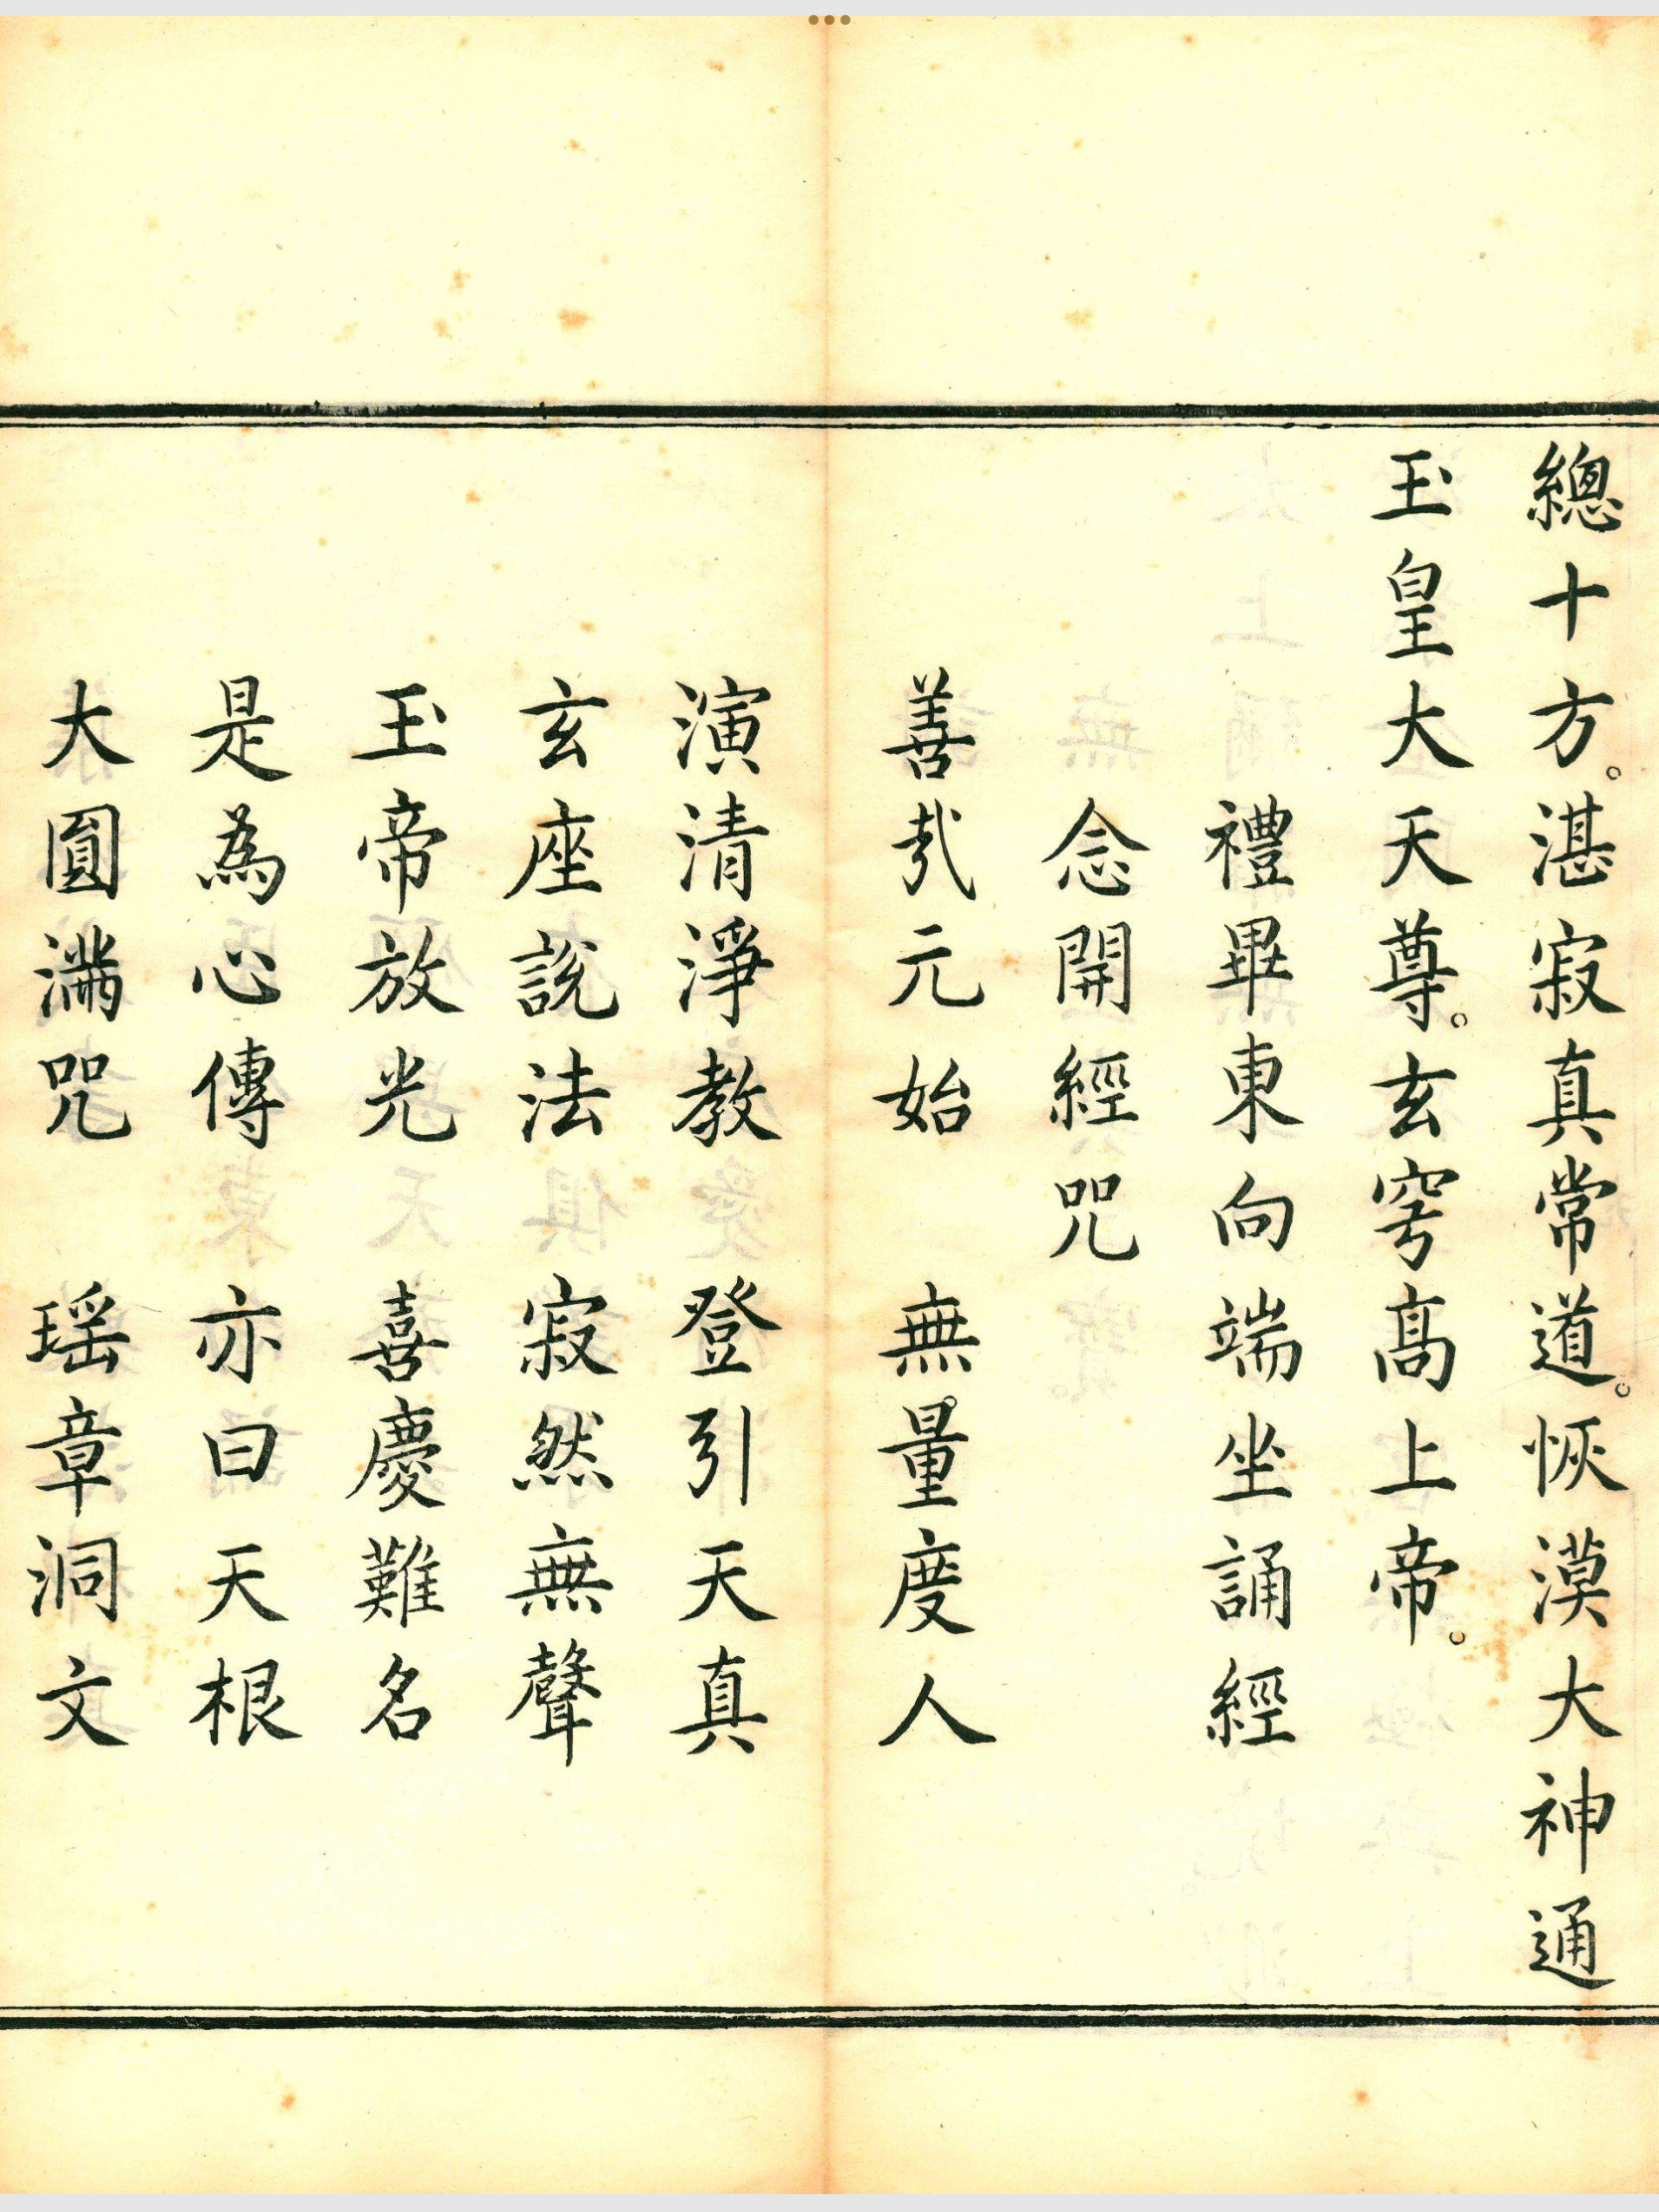 總十方。湛寂真常道。恢漠大神通
玉皇大天尊。玄穹高上帝。
禮畢東向端坐誦經
念開經咒
善哉元始　無量度人
演清淨教　登引天真
玄座說法　寂然無聲
玉帝放光　喜慶難名
是為心傳　亦曰天根
大圓滿咒　瑶章洞文